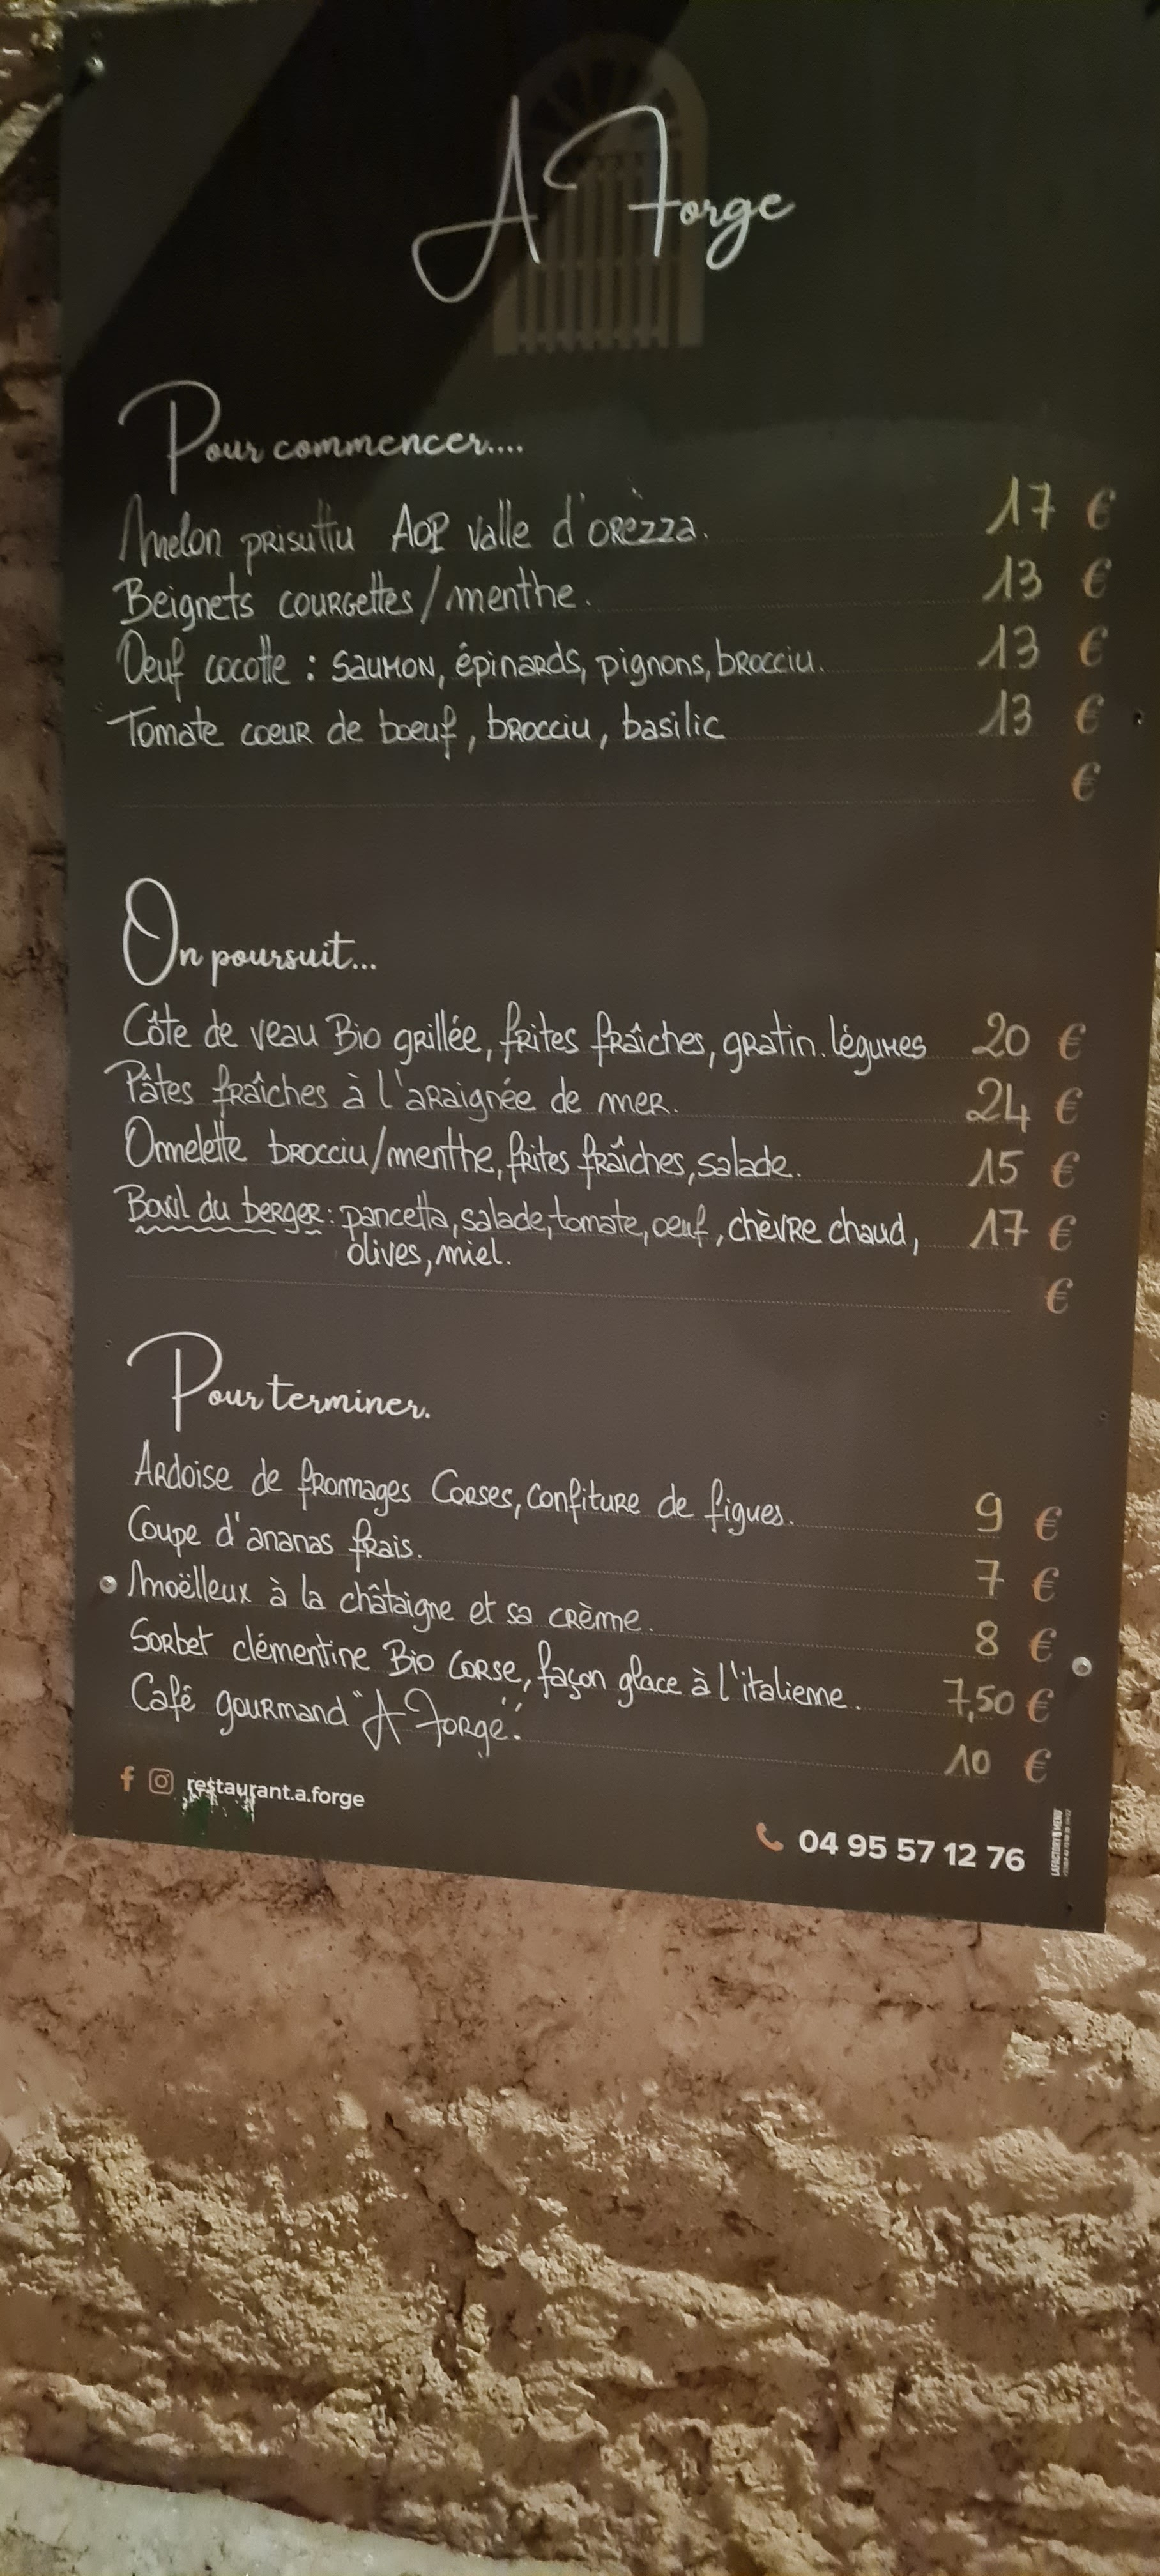 A Forge
Pour commencer....
Melon prisuttu AOP valle d'orèzza. 17 €
Beignets courgettes/menthe. 13 €
Oeuf cocotte : saumon, épinards, pignons, brocciu. 13 €
Tomate coeur de boeuf, brocciu, basilic 13 €
€
On poursuit...
Côte de veau Bio grillée, frites fraîches, gratin. légumes 20 €
Pâtes fraîches à l'araignée de mer. 24 €
Omelette brocciu/menthe, frites fraîches, salade. 15 €
Bowl du berger : pancetta, salade, tomate, oeuf, chèvre chaud, 17 €
olives, miel.
€
Pour terminer.
Ardoise de fromages Corses, confiture de figues. 9 €
Coupe d'ananas frais. 7 €
Moëlleux à la châtaigne et sa crème. 8 €
Sorbet clémentine Bio Corse, façon glace à l'italienne. 7,50 €
Café gourmand "A Forge". 10 €
restaurant.a.forge
04 95 57 12 76